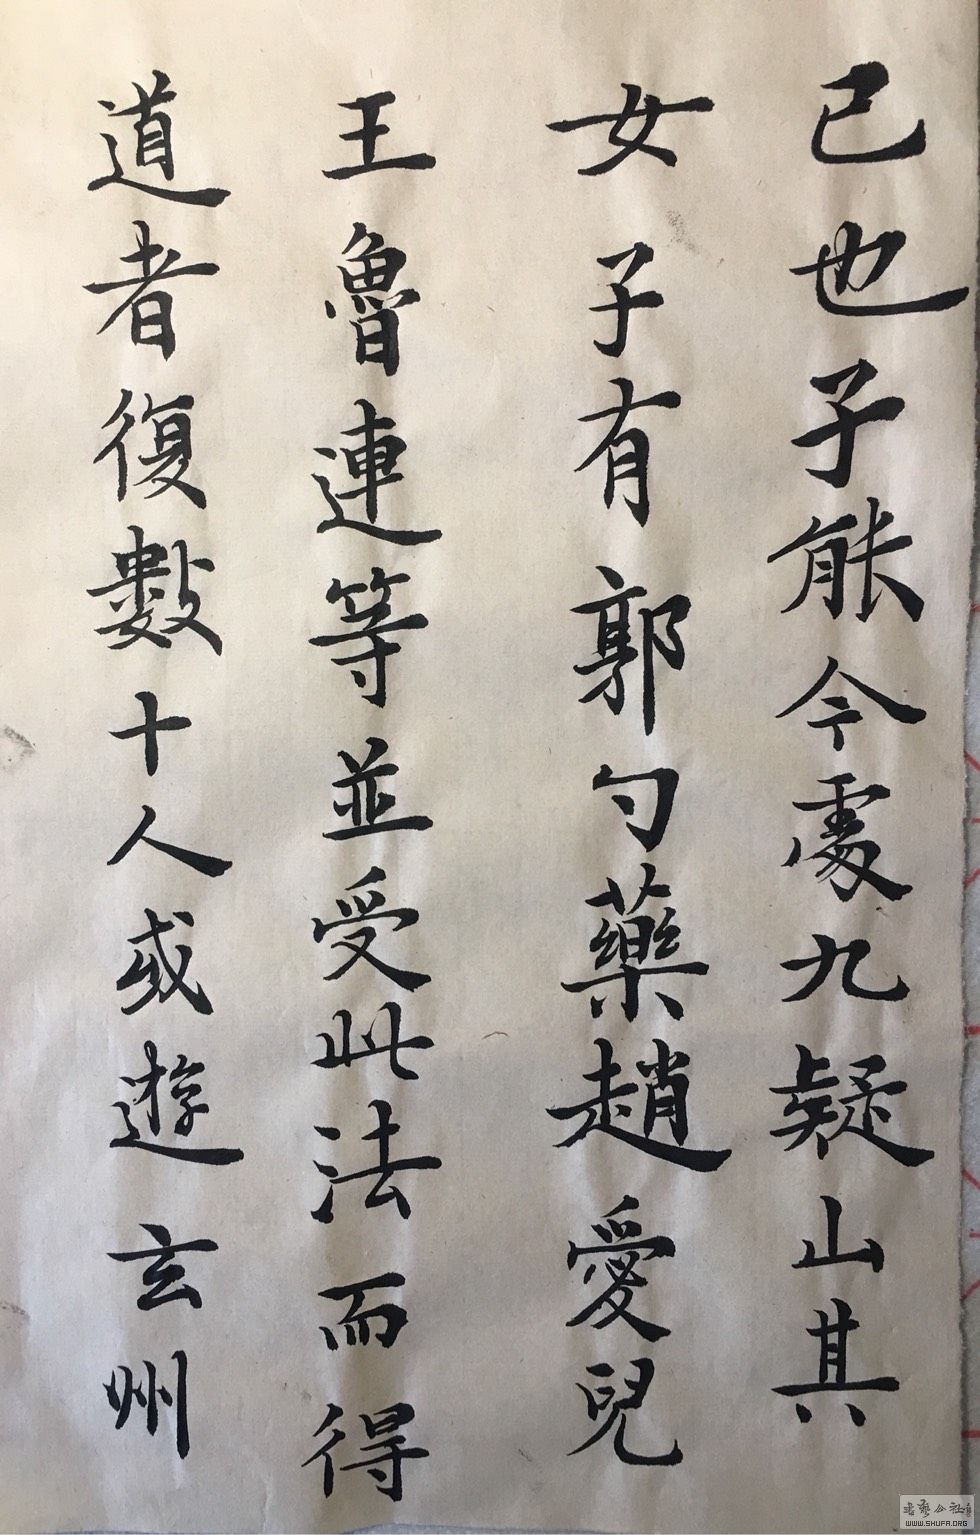 已也子能今處九疑山其
女子有郭勺藥趙愛兒
王魯連等並受此法而得
道者復數十人或遊玄州
WWW.SHUFA.ORG